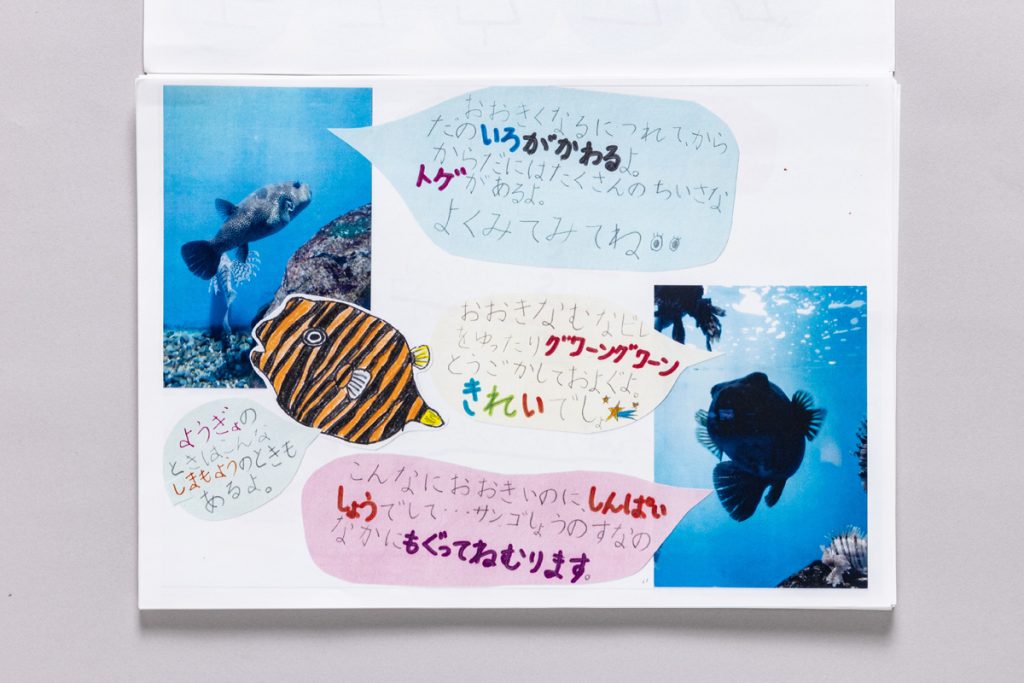 おおきくなるにつれて、から
だのいろがかわるよ。
からだにはたくさんのちいさな
トゲがあるよ。
よくみてみてね
おおきなむなビレ
をゆったりグワーングワーン
とうごかしておよぐよ。
きれいでしょ
ようぎょの
ときはこんな
しまもようのときも
あるよ。
こんなにおおきいのに、しんぱい
しょうでして・・・サンゴしょうのすなの
なかにもぐってねむります。